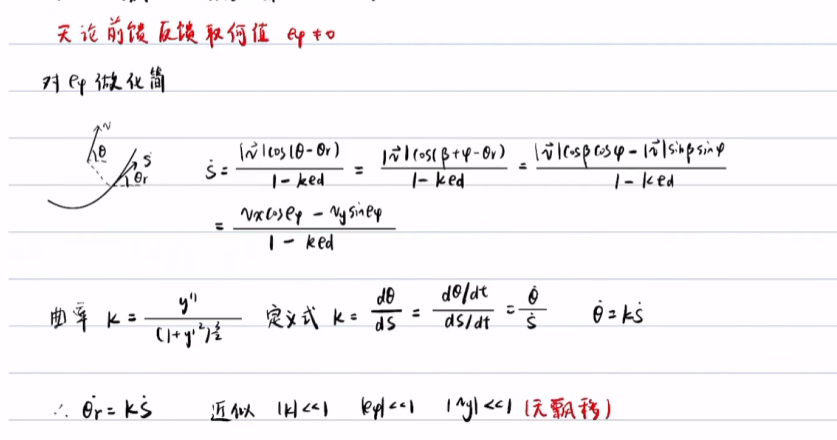 无论前馈反馈取何值 eφ≠0
对 eφ 做化简
v θ ṡ θr
ṡ = |v⃗|cos(θ-θr) / (1-ked) = |v⃗|cos(β+φ-θr) / (1-ked) = (|v⃗|cosβcosφ - |v⃗|sinβsinφ) / (1-ked)
= (vxcoseφ - vysineφ) / (1-ked)
曲率 k = y'' / (1+y'²)^(3/2) 定义式 k = dθ/ds = (dθ/dt) / (ds/dt) = θ̇/ṡ θ̇ = kṡ
∴ θ̇r = kṡ 近似 |k|<<1 |eφ|<<1 |vy|<<1 (无飘移)